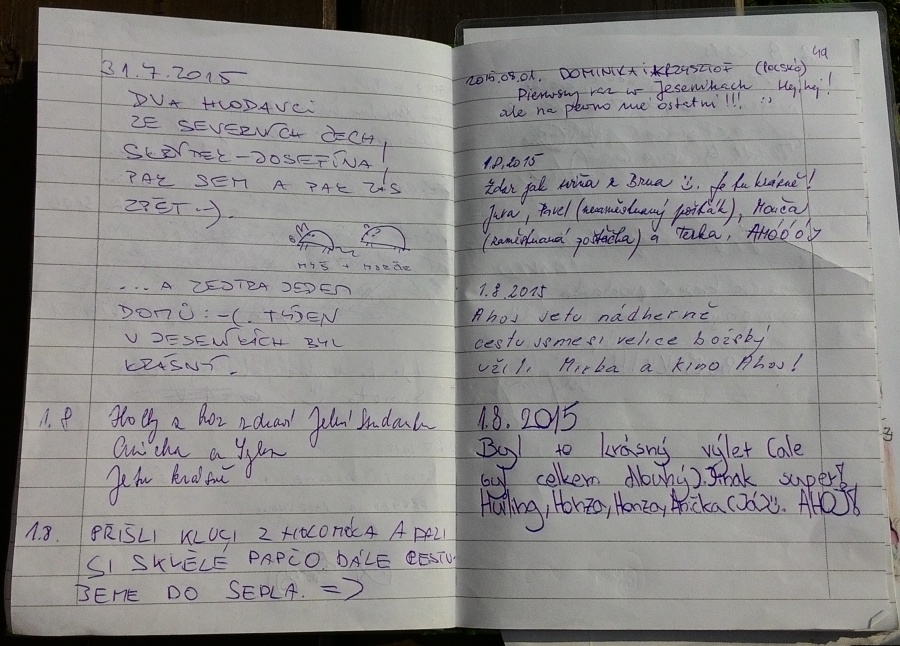 31.7.2015
DVA HLODAVCI
ZE SEVERNÍCH ČECH,
SKŘÍTEK-JOSEFÍNA!
PAK SEM A PAK ZAS
ZPĚT :-).
MYŠ + MORČE
... A ZEJTRA JEDEM
DOMŮ :-(. TÝDEN
V JESENÍKÁCH BYL
KRÁSNÝ.
1.8 Holky z hor zdraví Jelení Studánku
a
Je tu krásně
1.8. PŘIŠLI KLUCI Z HOLOMÓCA A DALI
SI SKVĚLÉ PAPČO. DÁLE CESTU-
JEME DO SEDLA. =>
49
2015.08.01. DOMINIKA i KRZYSZTOF (Polska)
Pierwszy raz w Jesenikach Hej hej!
ale na pewno nie ostatni!!! :)
1.8.2015
Zdar jak sviňa z Brna :). Je tu krásně!
Jura, Pavel (nezaměstnaný pošťák), Monča
(zaměstnaná pošťačka) a Terka, AHÓÓÓJ
1.8.2015
Ahoj jetu nádherně
cestu jsmesi velice božsky
užili. Mirka a kino Ahoj!
1.8.2015
Byl to krásný výlet (ale
byl celkem dlouhý). Jinak super!
Honza, Honza, Anička (Já) :). AHOJ!